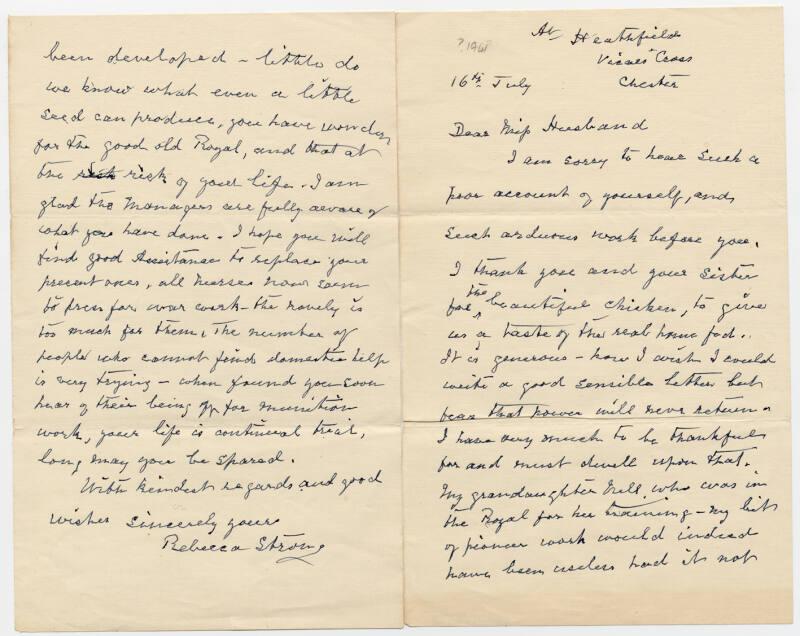 At Heathfield
Vicars Cross
?1941
16th July Chester
Dear Miss Husband
I am sorry to hear such a
poor account of yourself, and
such arduous work before you.
I thank you and your sister
for the beautiful chicken, to give
us a taste of the real home fed..
It is generous - how I wish I could
write a good sensible letter but
fear that power will never return.
I have very much to be thankful
for and must dwell upon that.
My grandaughter Nell, who was in
the Royal for her training - my bit
of pioneer work would indeed
have been useless had it not
been developed - little do
we know what even a little
seed can produce, you have
for the good old Royal, and that at
the risk of your life. I am
glad the Managers are fully aware of
what you have done. I hope you will
find good Assistants to replace your
present ones, all nurses now seem
to press for war work - the novelty is
too much for them, The number of
people who cannot find domestic help
is very trying - when found you soon
hear of their being off for munition
work, your life is continual trial,
long may you be spared.
With kindest regards and good
wishes sincerely yours
Rebecca Strong